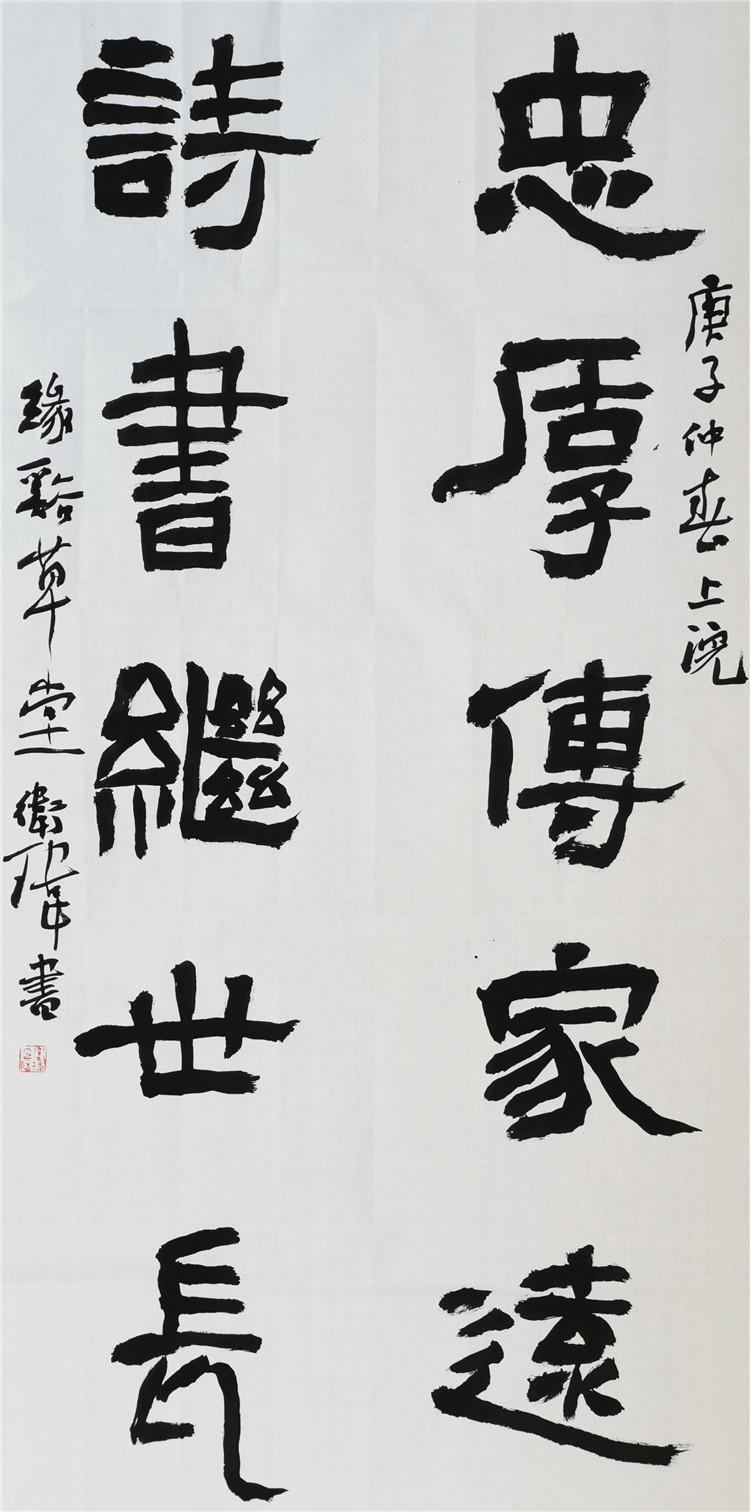 庚子仲春上浣
忠厚傳家遠
詩書繼世長
緣谿草堂衛瑋書